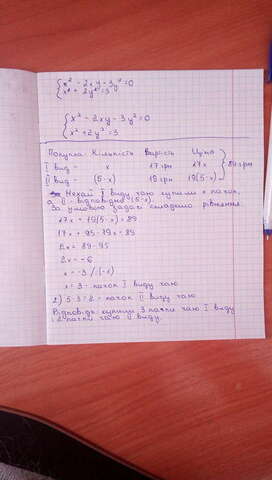 x² - 2xy - 3y²=0
x² + 2y²=3
x² - 2xy - 3y²=0
x² + 2y² = 3
Покупка Кількість Вартість Ціна
I вид - x 17 грн 17x 89 грн
II вид - (5-x) 19 грн 19(5-x)
Нехай I виду чаю купили x пачок,
а II - відповідно (5-x).
За умовою задачі складемо рівняння:
17x + 19(5-x) = 89
17x + 95 - 19x = 89
2x = 89-95
2x = -6
x = -3 /(-1)
x = 3 - пачок I виду чаю
2) 5-3=2 - пачок II виду чаю
Відповідь: купили 3 пачки чаю I виду
і 2 пачки чаю II виду.